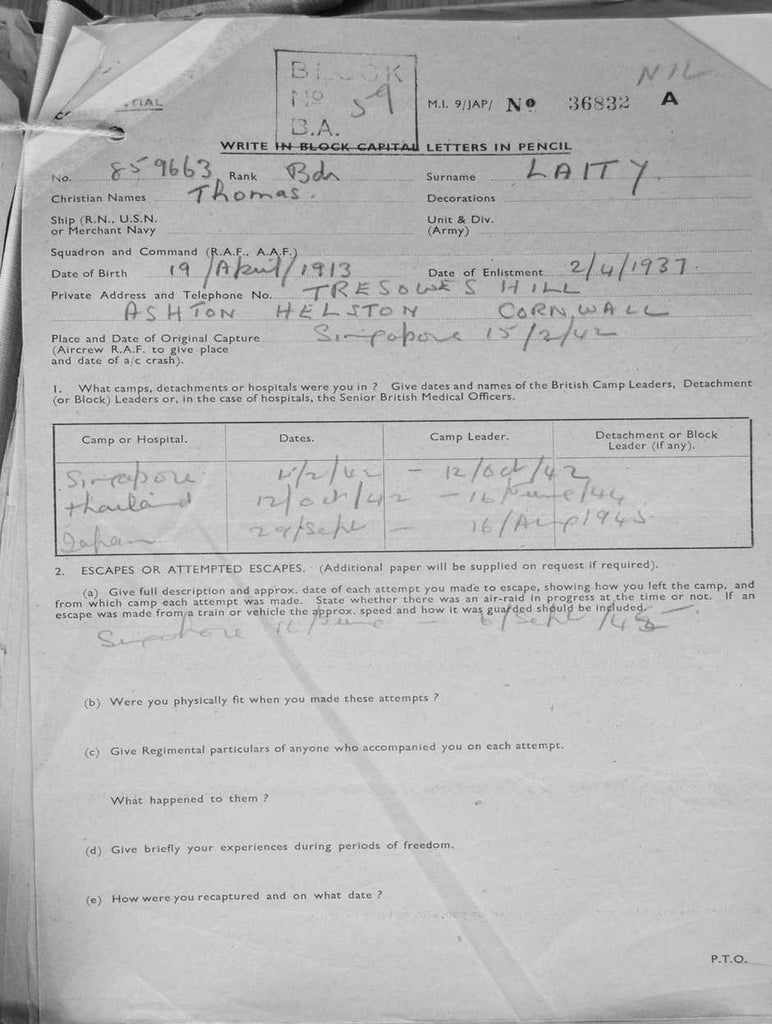 BLOCK
No 59
B.A.
NIL
M.I. 9/JAP/ No 36832 A
WRITE IN BLOCK CAPITAL LETTERS IN PENCIL
No. 859663 Rank Bdr Surname LAITY.
Christian Names Thomas. Decorations
Ship (R.N., U.S.N. or Merchant Navy Unit & Div. (Army)
Squadron and Command (R.A.F., A.A.F.)
Date of Birth 19/April/1913 Date of Enlistment 2/4/1937
Private Address and Telephone No. TRESOWES HILL
ASHTON HELSTON CORNWALL
Place and Date of Original Capture Singapore 15/2/42
(Aircrew R.A.F. to give place
and date of a/c crash).
1. What camps, detachments or hospitals were you in ? Give dates and names of the British Camp Leaders, Detachment
(or Block) Leaders or, in the case of hospitals, the Senior British Medical Officers.
Camp or Hospital. Dates. Camp Leader. Detachment or Block Leader (if any).
Singapore 15/2/42 - 12/Oct/42
Thailand 12/Oct/42 - 16/June/44
Japan 29/Sept - 16/Aug 1945
2. ESCAPES OR ATTEMPTED ESCAPES. (Additional paper will be supplied on request if required).
(a) Give full description and approx. date of each attempt you made to escape, showing how you left the camp, and
from which camp each attempt was made. State whether there was an air-raid in progress at the time or not. If an
escape was made from a train or vehicle the approx. speed and how it was guarded should be included.
Singapore 16/June - 6/Sept
(b) Were you physically fit when you made these attempts ?
(c) Give Regimental particulars of anyone who accompanied you on each attempt.
What happened to them ?
(d) Give briefly your experiences during periods of freedom.
(e) How were you recaptured and on what date ?
P.T.O.